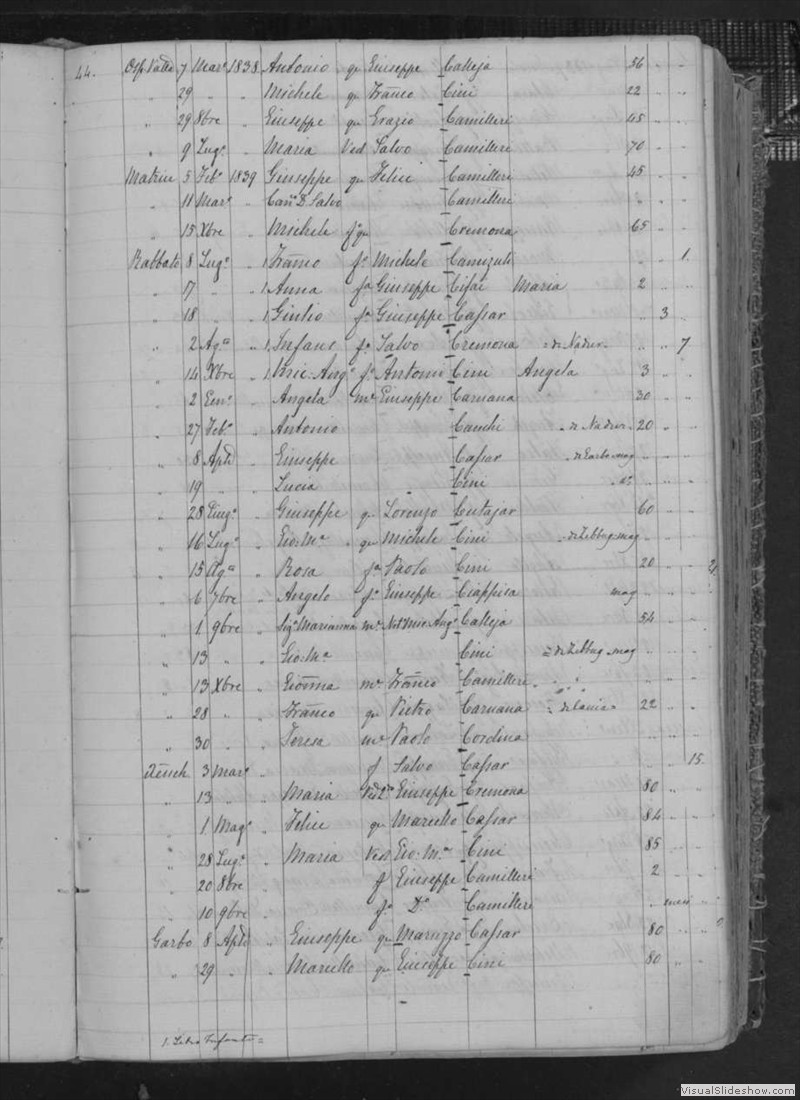 44. Osp. Vallta 7 Mar. 1838. Antonio qu Giuseppe Calleja 56 " "
" 29 " " Michele qu Franco Cini 22 " "
" 29 8bre " Giuseppe qu Grazio Camilleri 45 " "
" 9 Lugo " Maria Ved Salvo Camilleri 70 " "
Matrice 5 Febo 1839 Giuseppe qu Felice Camilleri 45 " "
" 11 Maro " Cano D Salvo Camilleri " "
" 15 Xbre " Michele fo qu Cremona 65 " "
Rabbato 8 Lugo " 1. Franco fo Michele Camizuli " " 1.
" 17 " " 1. Anna fa Giuseppe Cifai Maria 2 " "
" 18 " " 1. Giulio fo Giuseppe Cassar " 3 "
" 2 Ago " 1. Infans fo Salvo Cremona = di Nadur " " 7
" 14 Xbre " 1. Mic: Ango fo Antonio Cini Angela 3 " "
" 2 Geno " Angela me Giuseppe Caruana 30 " "
" 27 Febo " Antonio Cauchi " di Nadur 20 " "
" 8 Aple " Giuseppe Cassar " di Garbo mag " "
" 19 " " Lucia Cini " "
" 28 Giugo " Giuseppe qu Lorenzo Cutajar 60 " "
" 16 Lugo " Gio: Ma qu Michele Cini " di Zebbug mag " "
" 15 Ago " Rosa fa Paolo Cini 20 " " 2.
" 6 7bre " Angelo fo Giuseppe Ciappisa mag " "
" 1 9bre " Siga Marianna me Noto Mic: Ango Calleja 54 " "
" 13 " " Gio: Ma Cini = di Zebbug mag " "
" 13 Xbre " Gioanna me Franco Camilleri " " "
" 28 " " Franco qu Pietro Caruana 22 " "
" 30 " " Teresa me Paolo Cordina " "
Xeuch. 3 Maro " f Salvo Cassar " " 15.
" 13 " " Maria Veda Giuseppe Cremona 80 " "
" 1 Mago " Felice qu Marcello Cassar 84 " "
" 28 Lugo " Maria Ved Gio: Ma Cini 85 " "
" 20 8bre " f Giuseppe Camilleri 2 " "
" 10 9bre " fo Do Camilleri " mesi "
Garbo 8 Aple " Giuseppe qu Maruzzo Cassar 80 " "
" 29 " Marcello qu Giuseppe Cini 80 " "
1. Libro Infanti =
VisualSlideshow.com